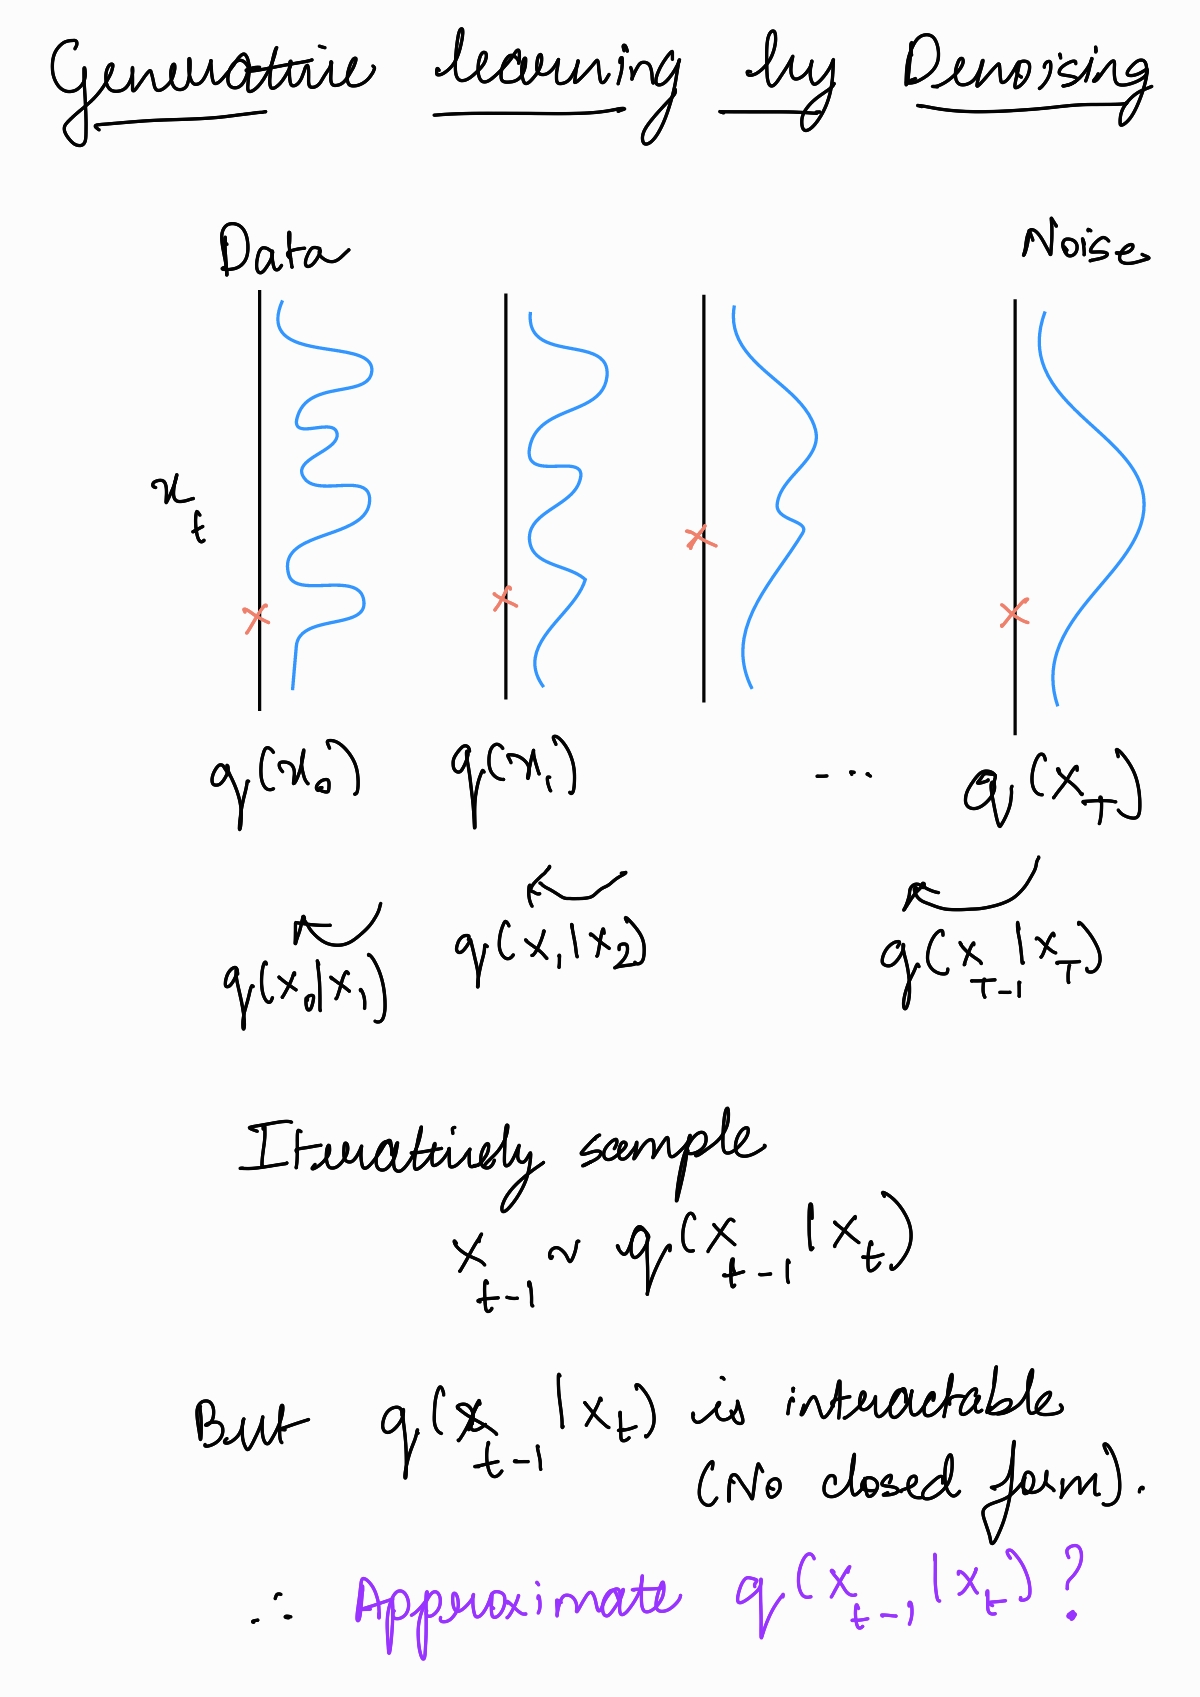 Generative learning by Denoising
Data Noise
x_t
q(x_0) q(x_1) ... q(x_T)
q(x_0|x_1) q(x_1|x_2) q(x_{T-1}|x_T)
Iteratively sample
x_{t-1} ~ q(x_{t-1}|x_t)
But q(x_{t-1}|x_t) is intractable
(No closed form).
∴ Approximate q(x_{t-1}|x_t)?